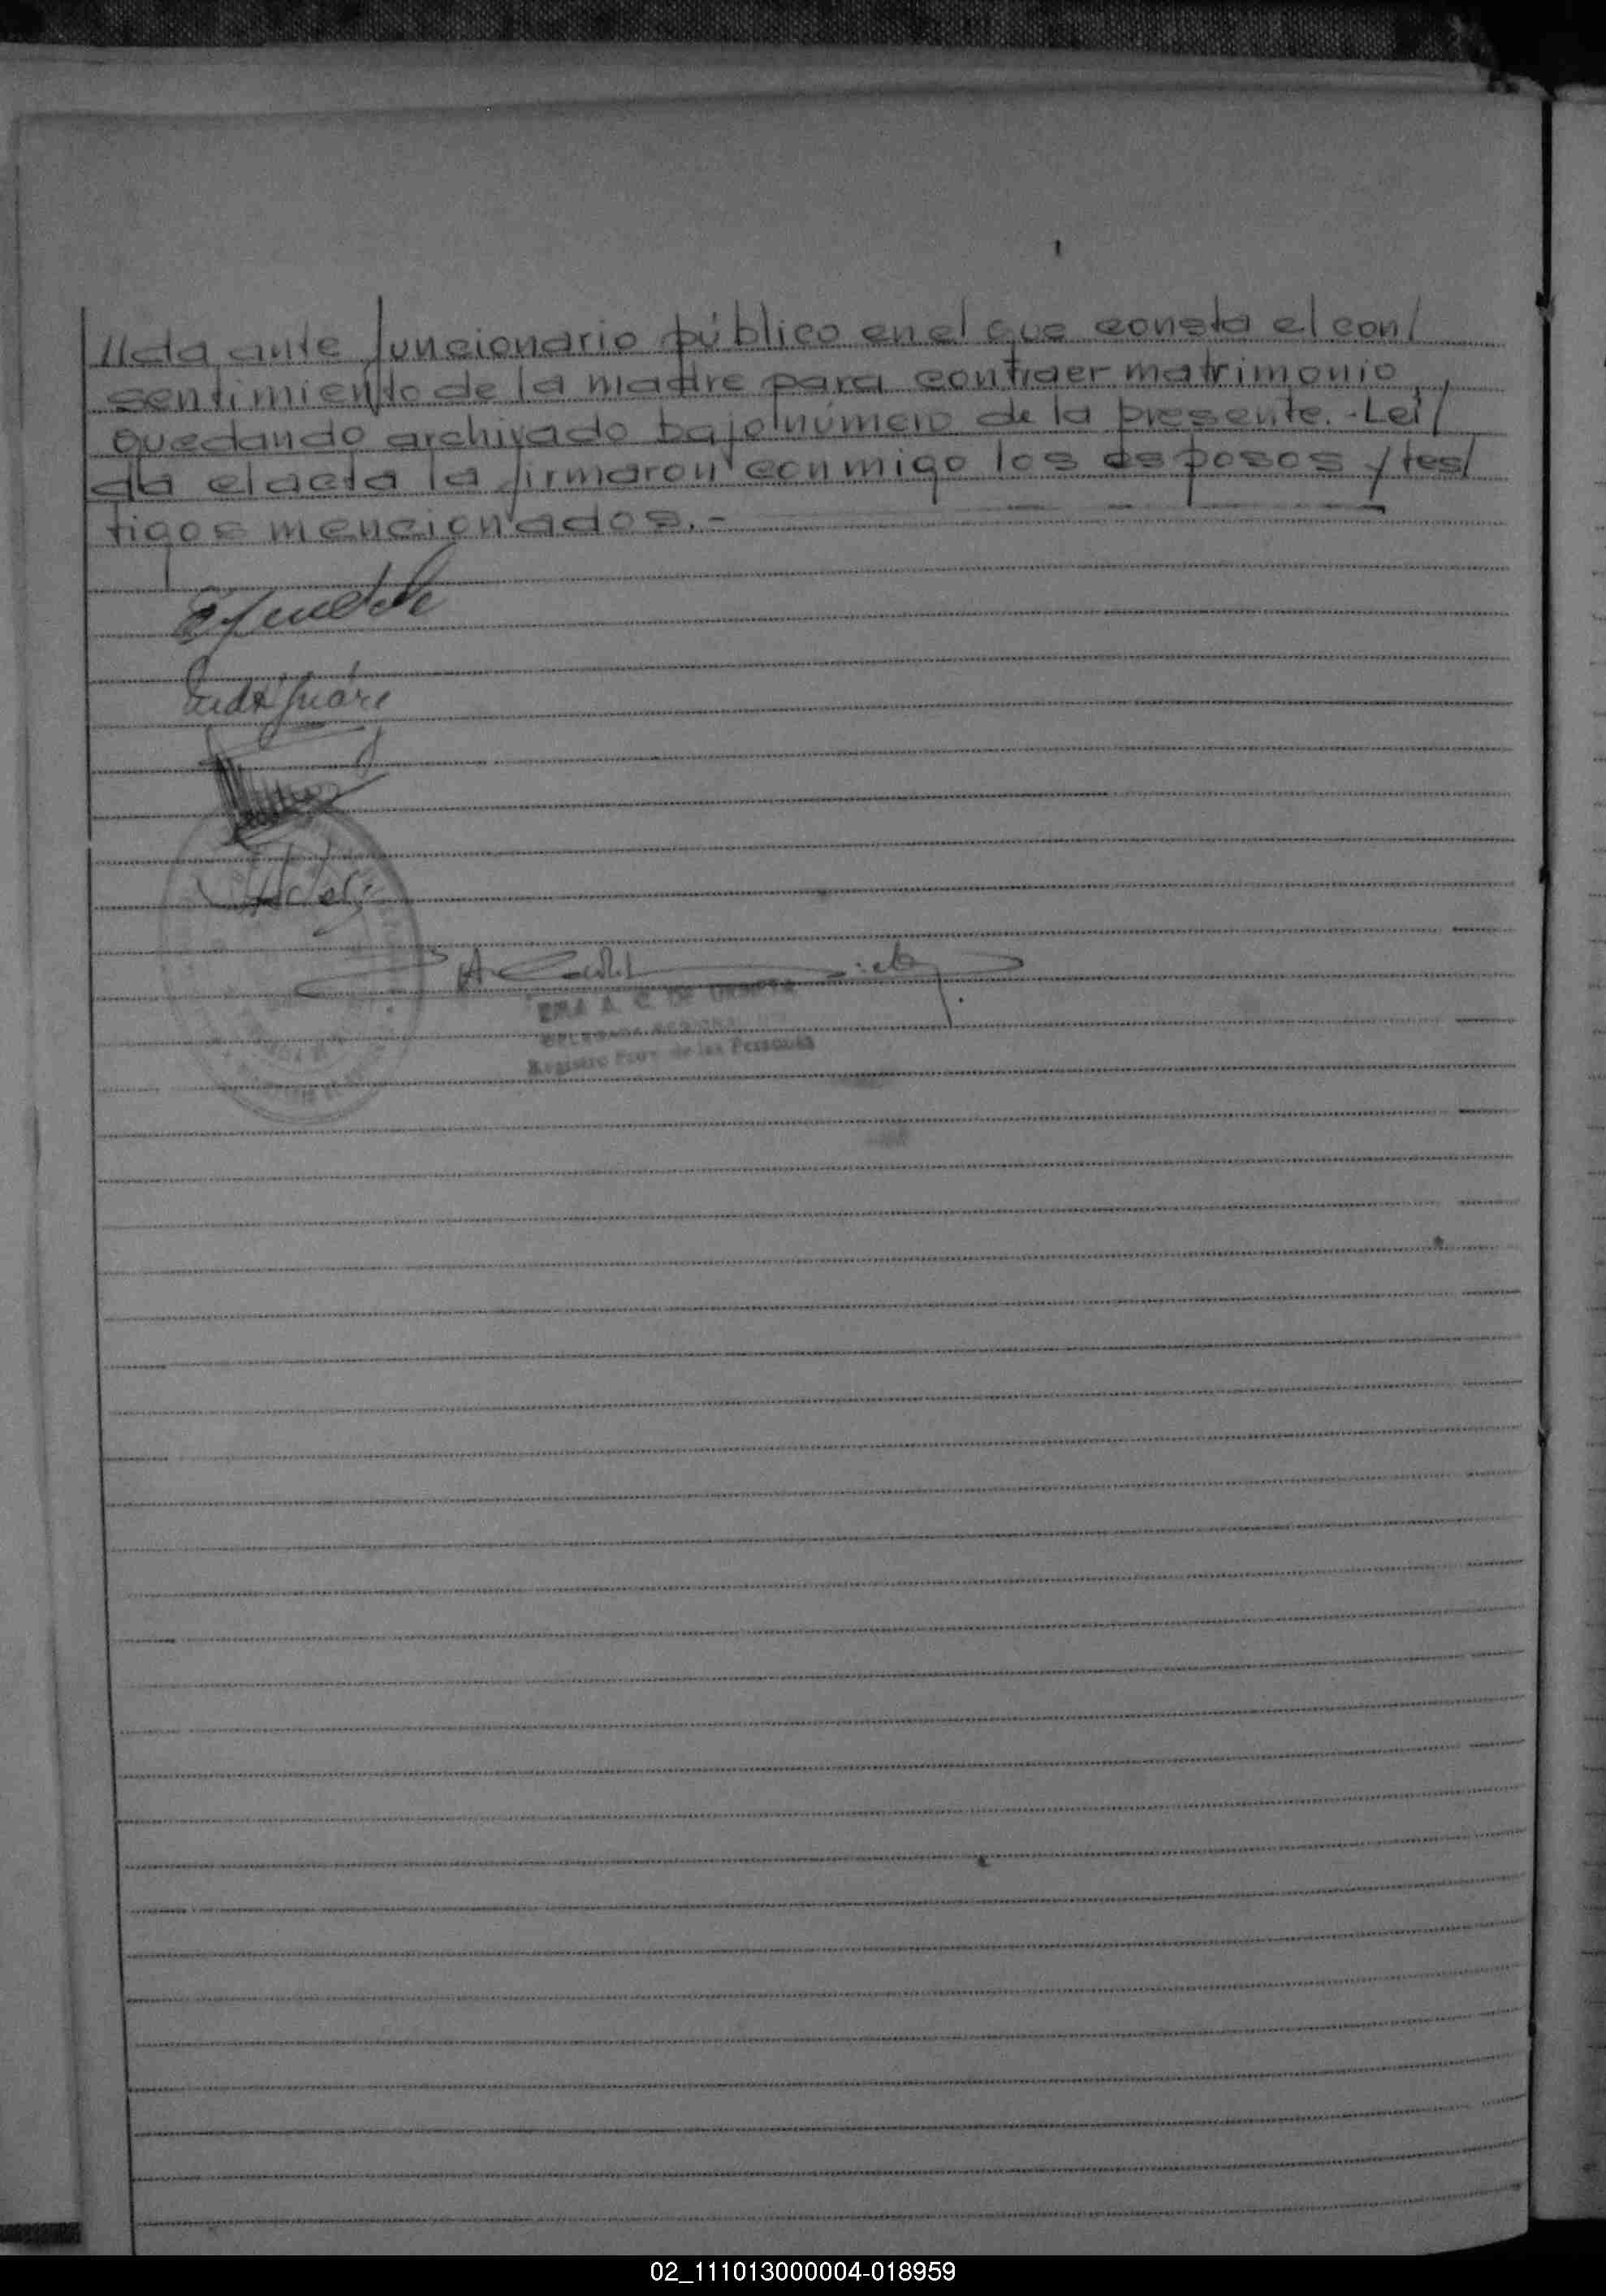 llada, ante funcionario público en el que consta el con/
sentimiento de la madre para contraer matrimonio,
quedando archivado bajo número de la presente.-Leí/
da el acta la firmaron conmigo los esposos y tes/
tigos mencionados.-
A. C. DE
Registro Prov de las Personas
02_111013000004-018959